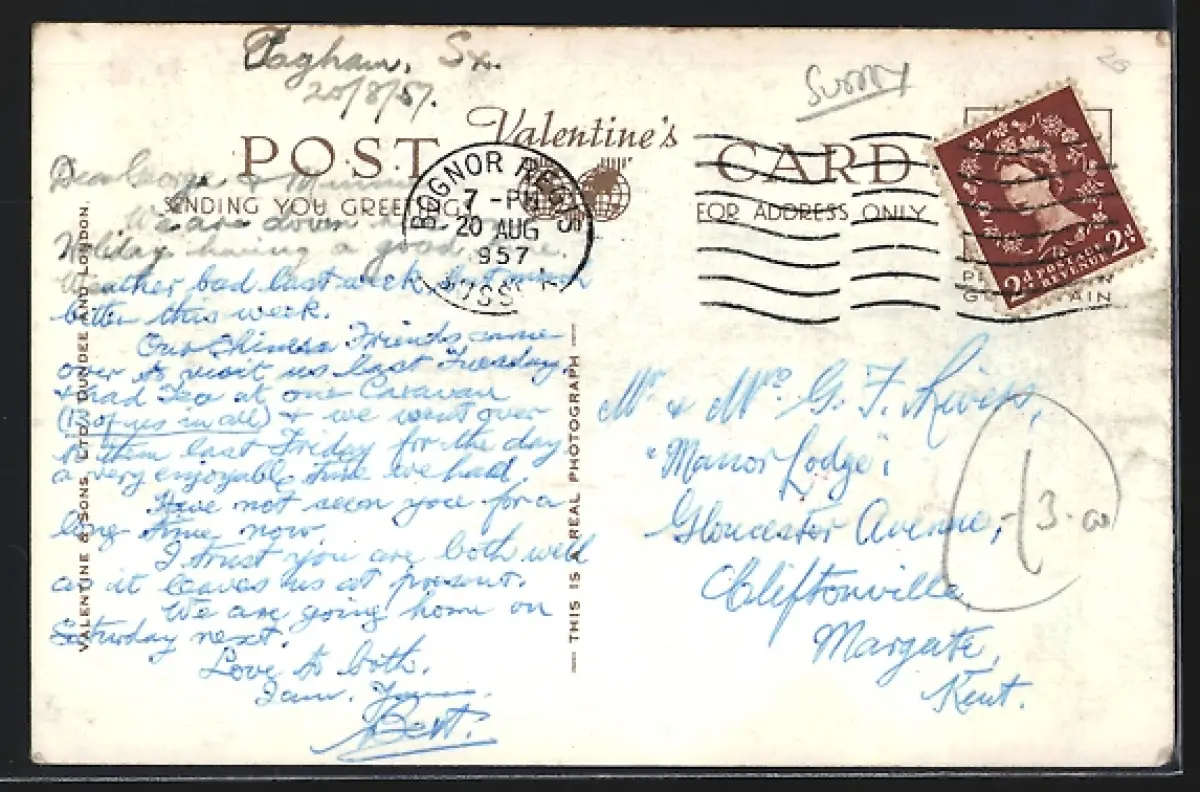 Pagham, Sx.
20/8/57.
Surrey
20
Valentine's
POST CARD
SENDING YOU GREETINGS
FOR ADDRESS ONLY
BOGNOR REGIS
7 - PM
20 AUG
1957
SUSSEX
2d POSTAGE 2d
REVENUE
Dear George &
We are down
Holiday having a good time.
Weather bad last week, but much
better this week.
Our Chinese Friends came
over to visit us last Tuesday
& had Tea at our Caravan
(13 of us in all) & we went over
to them last Friday for the day
a very enjoyable time we had.
Have not seen you for a
long time now.
I trust you are both well
as it leaves us at present.
We are going home on
Saturday next.
Love to both.
I am. Yours.
Bert.
VALENTINE & SONS, LTD., DUNDEE AND LONDON.
THIS IS A REAL PHOTOGRAPH
Mr & Mrs G. F. Rivers,
"Manor Lodge",
Gloucester Avenue,
Cliftonville,
Margate,
Kent.